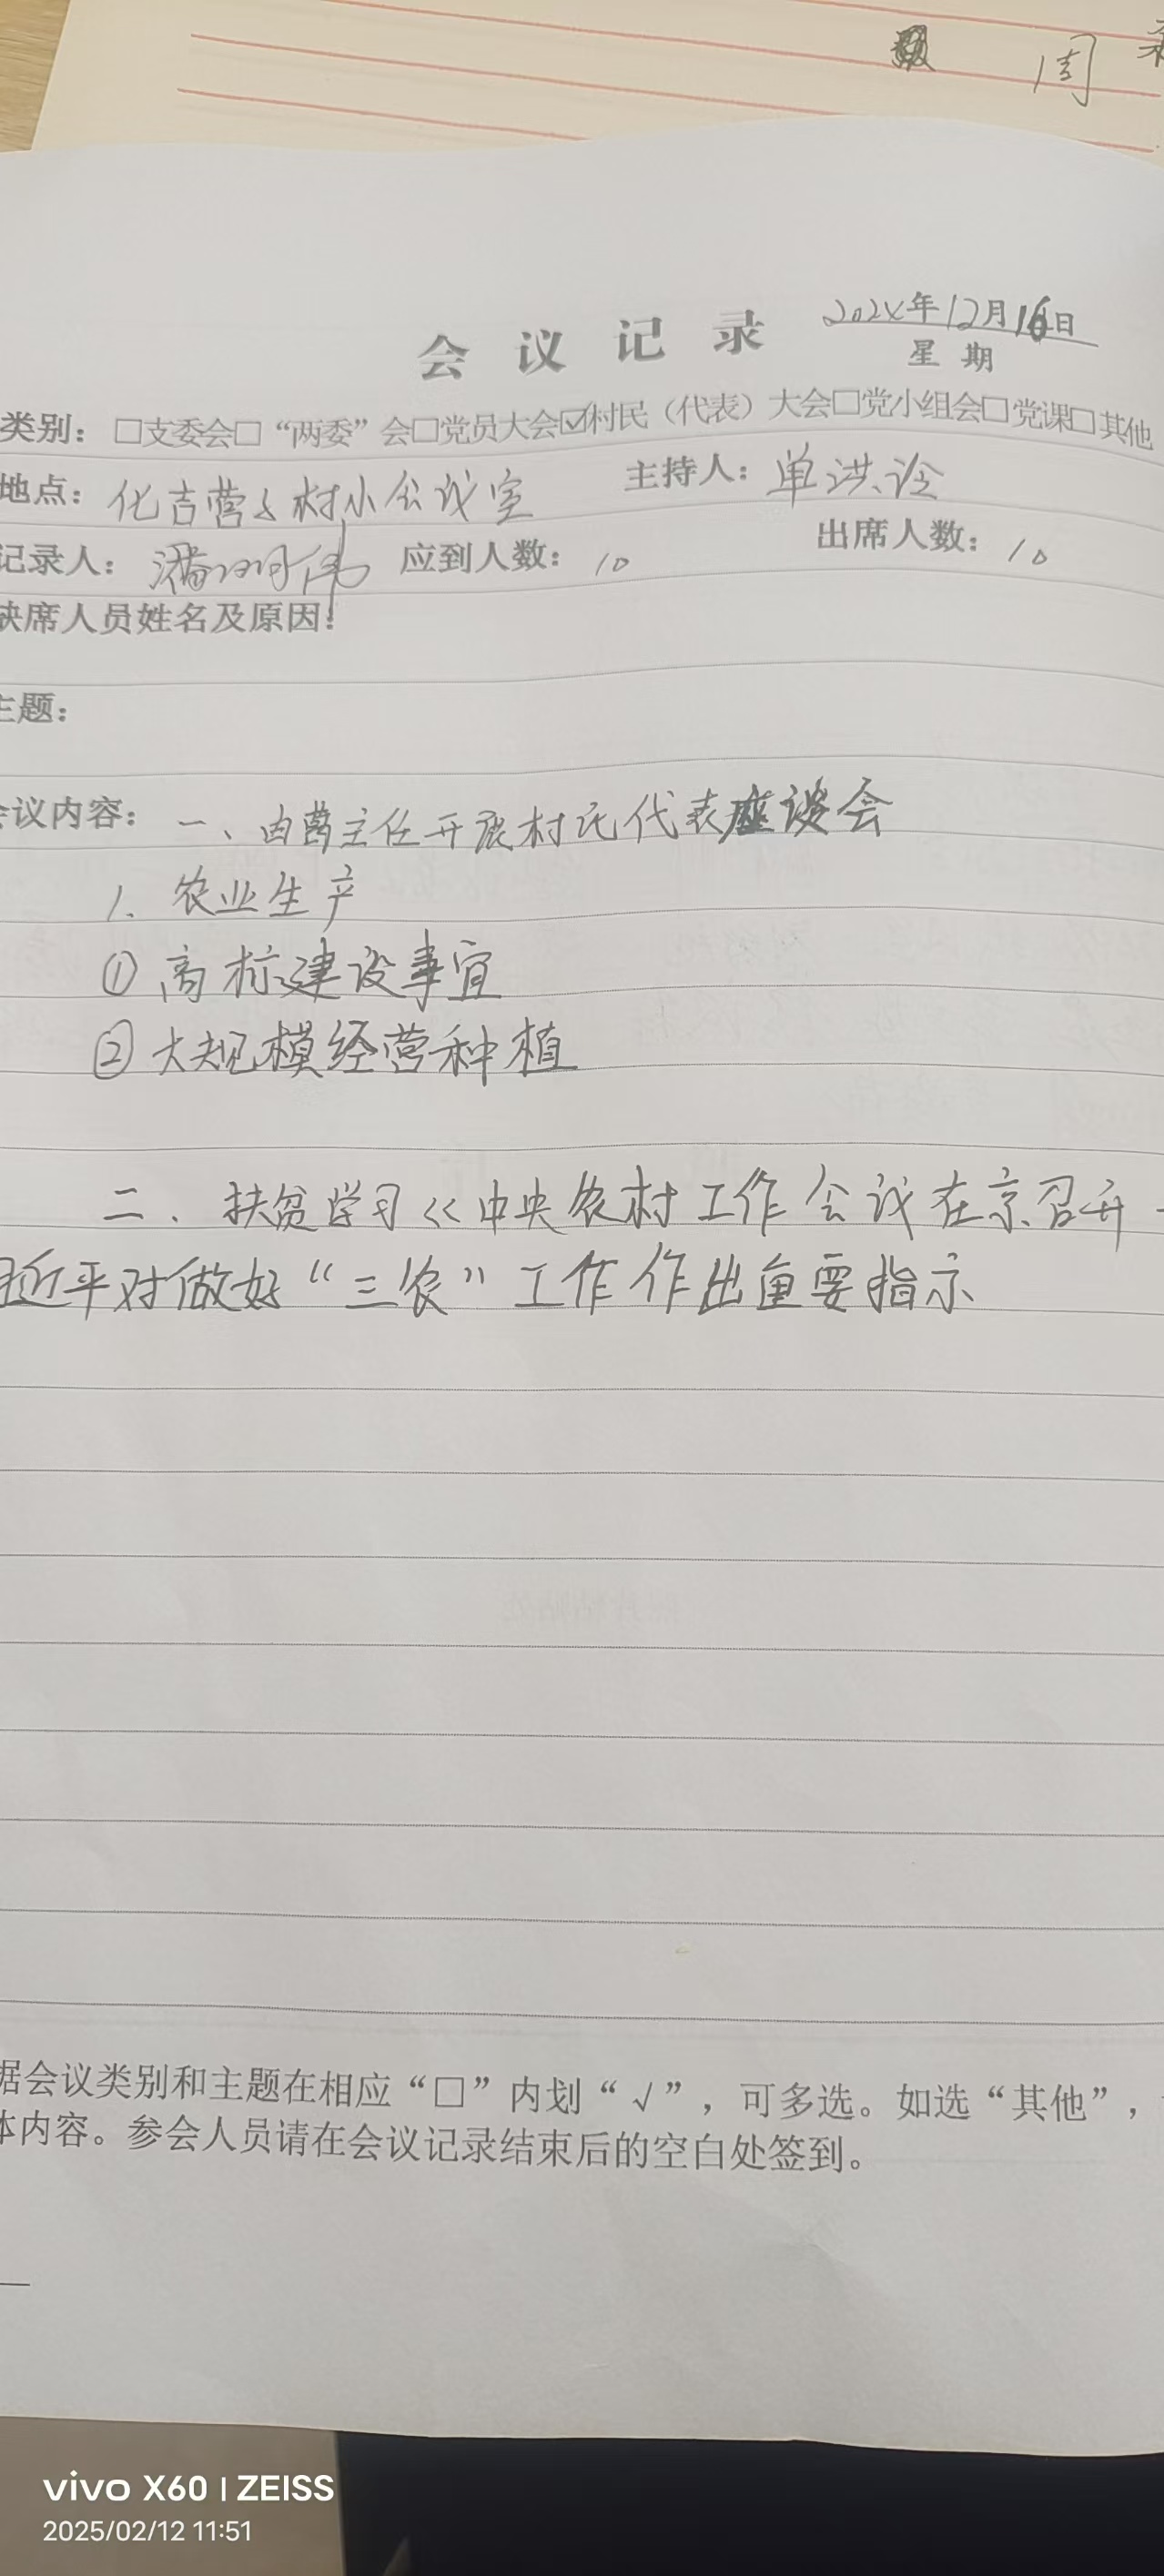 周
会议记录 2024年12月16日
星期
类别：□支委会□“两委”会□党员大会☑村民（代表）大会□党小组会□党课□其他
地点：化吉营子村小会议室 主持人：单洪
记录人：潘明伟 应到人数：10 出席人数：10
缺席人员姓名及原因：
主题：
会议内容：一、由 主任开展村民代表座谈会
1. 农业生产
① 高标建设事宜
② 大规模经营种植
二、扶贫学习《中央农村工作会议在京召开
习近平对做好“三农”工作作出重要指示
据会议类别和主题在相应“□”内划“√”，可多选。如选“其他”，
体内容。参会人员请在会议记录结束后的空白处签到。
vivo X60 | ZEISS
2025/02/12 11:51